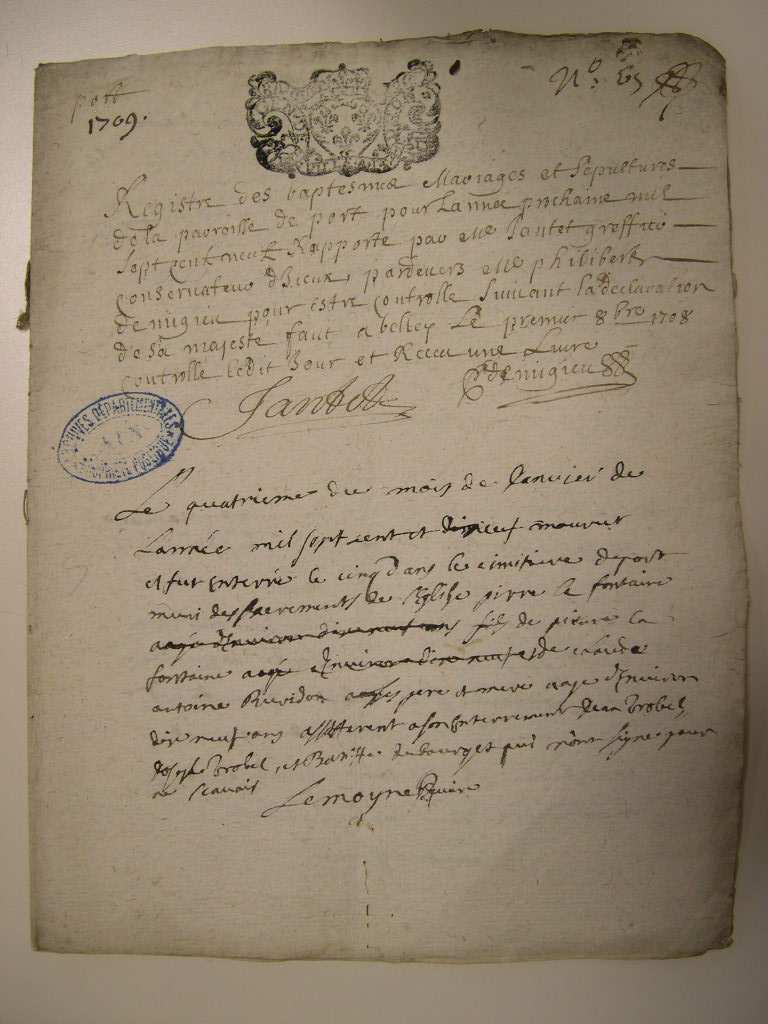 port
1709.
N.º
Registre des baptesmes Mariages et Sepultures
de la parroisse de port pour Lannee prochaine mil
Sept Cent neuf Rapporte par Me Jantet greffier
Conservateur d'Iceux pardevers Me philibert
demigieu pour estre Controllé Suivant la declaration
de sa majesté faut a belley Le premier 8bre 1708
Controllé Ledit Jour et Receu une Livre
Jantet
demigieu
ARCHIVES DEPARTEMENTALES
AIN
PROPRIETE PUBLIQUE
Le quatrieme du mois de Janvier de
Lannée mil sept cent et neuf mourut
et fut Enterré le cinq dans le cimitiere de port
muni des sacrements de l'Eglise pierre la fontaine
fils de pierre la
fontaine de claude
antoine pere et mere agé d'Environ
dix neuf ans assisterent a son Enterrement Jean Trobel
Joseph Trobel, et qui n'ont signé pour
ne scavoir
Lemoyne